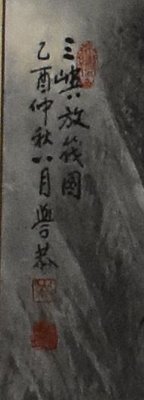 三峡放筏圖
乙酉仲秋八月學恭